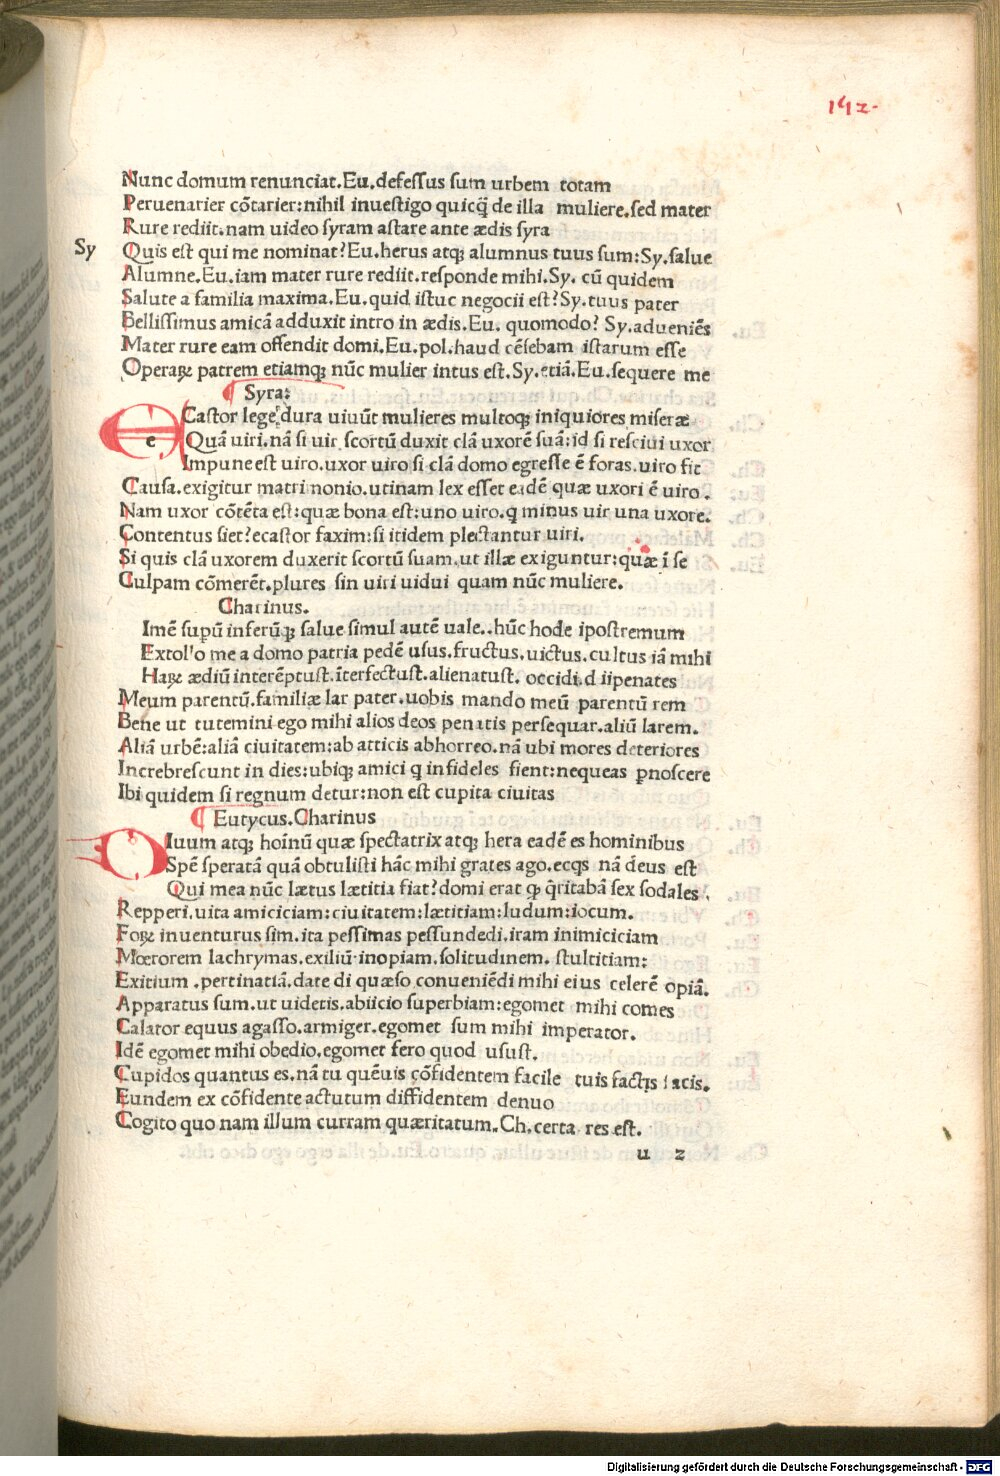 192.
Nunc domum renunciat.Eu.defessus sum urbem totam
Peruenarier cõtarier:nihil inuestigo quicq̃ de illa muliere.sed mater
Rure rediit.nam uideo syram astare ante ædis syra
Sy Quis est qui me nominat?Eu.herus atq; alumnus tuus sum:Sy.salue
Alumne.Eu.iam mater rure rediit.responde mihi.Sy. cũ quidem
Salute a familia maxima.Eu.quid istuc negocii est?Sy.tuus pater
Bellissimus amicã adduxit intro in ædis.Eu. quomodo? Sy.adueniẽs
Mater rure eam offendit domi.Eu.pol.haud cẽsebam istarum esse
Operaꝝ patrem etiamq; nũc mulier intus est.Sy.etiã.Eu.sequere me
Syra:
e Castor lege dura uiuũt mulieres multoq; iniquiores miseræ
Quã uiri.nã si uir scortũ duxit clã uxorẽ suã:id si resciui uxor
Impune est uiro.uxor uiro si clã domo egresse ẽ foras.uiro fit
Causa.exigitur matrimonio.utinam lex esset eadẽ quæ uxori ẽ uiro.
Nam uxor cõtẽta est:quæ bona est:uno uiro.q minus uir una uxore.
Contentus siet?ecastor faxim:si itidem plectantur uiri.
Si quis clã uxorem duxerit scortũ suam.ut illæ exiguntur:quæ ĩ se
Culpam cõmerẽt.plures sin uiri uidui quam nũc muliere.
Charinus.
Imẽ supũ inferũq; salue simul autẽ uale..hũc hode ipostremum
Extollo me a domo patria pedẽ usus.fructus.uictus.cultus iã mihi
Haꝝ ædiũ interẽptust.ĩterfectust.alienatust. occidi.d iipenates
Meum parentũ.familiæ lar pater.uobis mando meũ parentũ rem
Bene ut tutemini ego mihi alios deos penatis persequar.aliũ larem.
Aliã urbẽ:aliã ciuitatem:ab atticis abhorreo.nã ubi mores deteriores
Increbrescunt in dies:ubiq; amici q infideles sient:nequeas ꝑnoscere
Ibi quidem si regnum detur:non est cupita ciuitas
Eutycus.Charinus
Diuum atq; hoĩnũ quæ spectatrix atq; hera eadẽ es hominibus
Spẽ speratã quã obtulisti hãc mihi grates ago.ecqs nã deus est
Qui mea nũc lætus lætitia fiat?domi erat ꝙ q̃ritabã sex sodales.
Repperi.uita amiciciam:ciuitatem:lætitiam:ludum:iocum.
Foꝝ inuenturus sim.ita pessimas pessundedi.iram inimiciciam
Mœrorem lachrymas.exiliũ inopiam.solitudinem. stultitiam:
Exitium .pertinatiã.date di quæso conueniẽdi mihi eius celerẽ opiã.
Apparatus sum.ut uidetis.abiicio superbiam:egomet mihi comes
Calator equus agasso.armiger.egomet sum mihi imperator.
Idẽ egomet mihi obedio.egomet fero quod usust.
Cupidos quantus es.nã tu quẽuis cõfidentem facile tuis factis facis.
Eundem ex cõfidente actutum diffidentem denuo
Cogito quo nam illum curram quæritatum.Ch.certa res est.
u 2
Digitalisierung gefördert durch die Deutsche Forschungsgemeinschaft - DFG